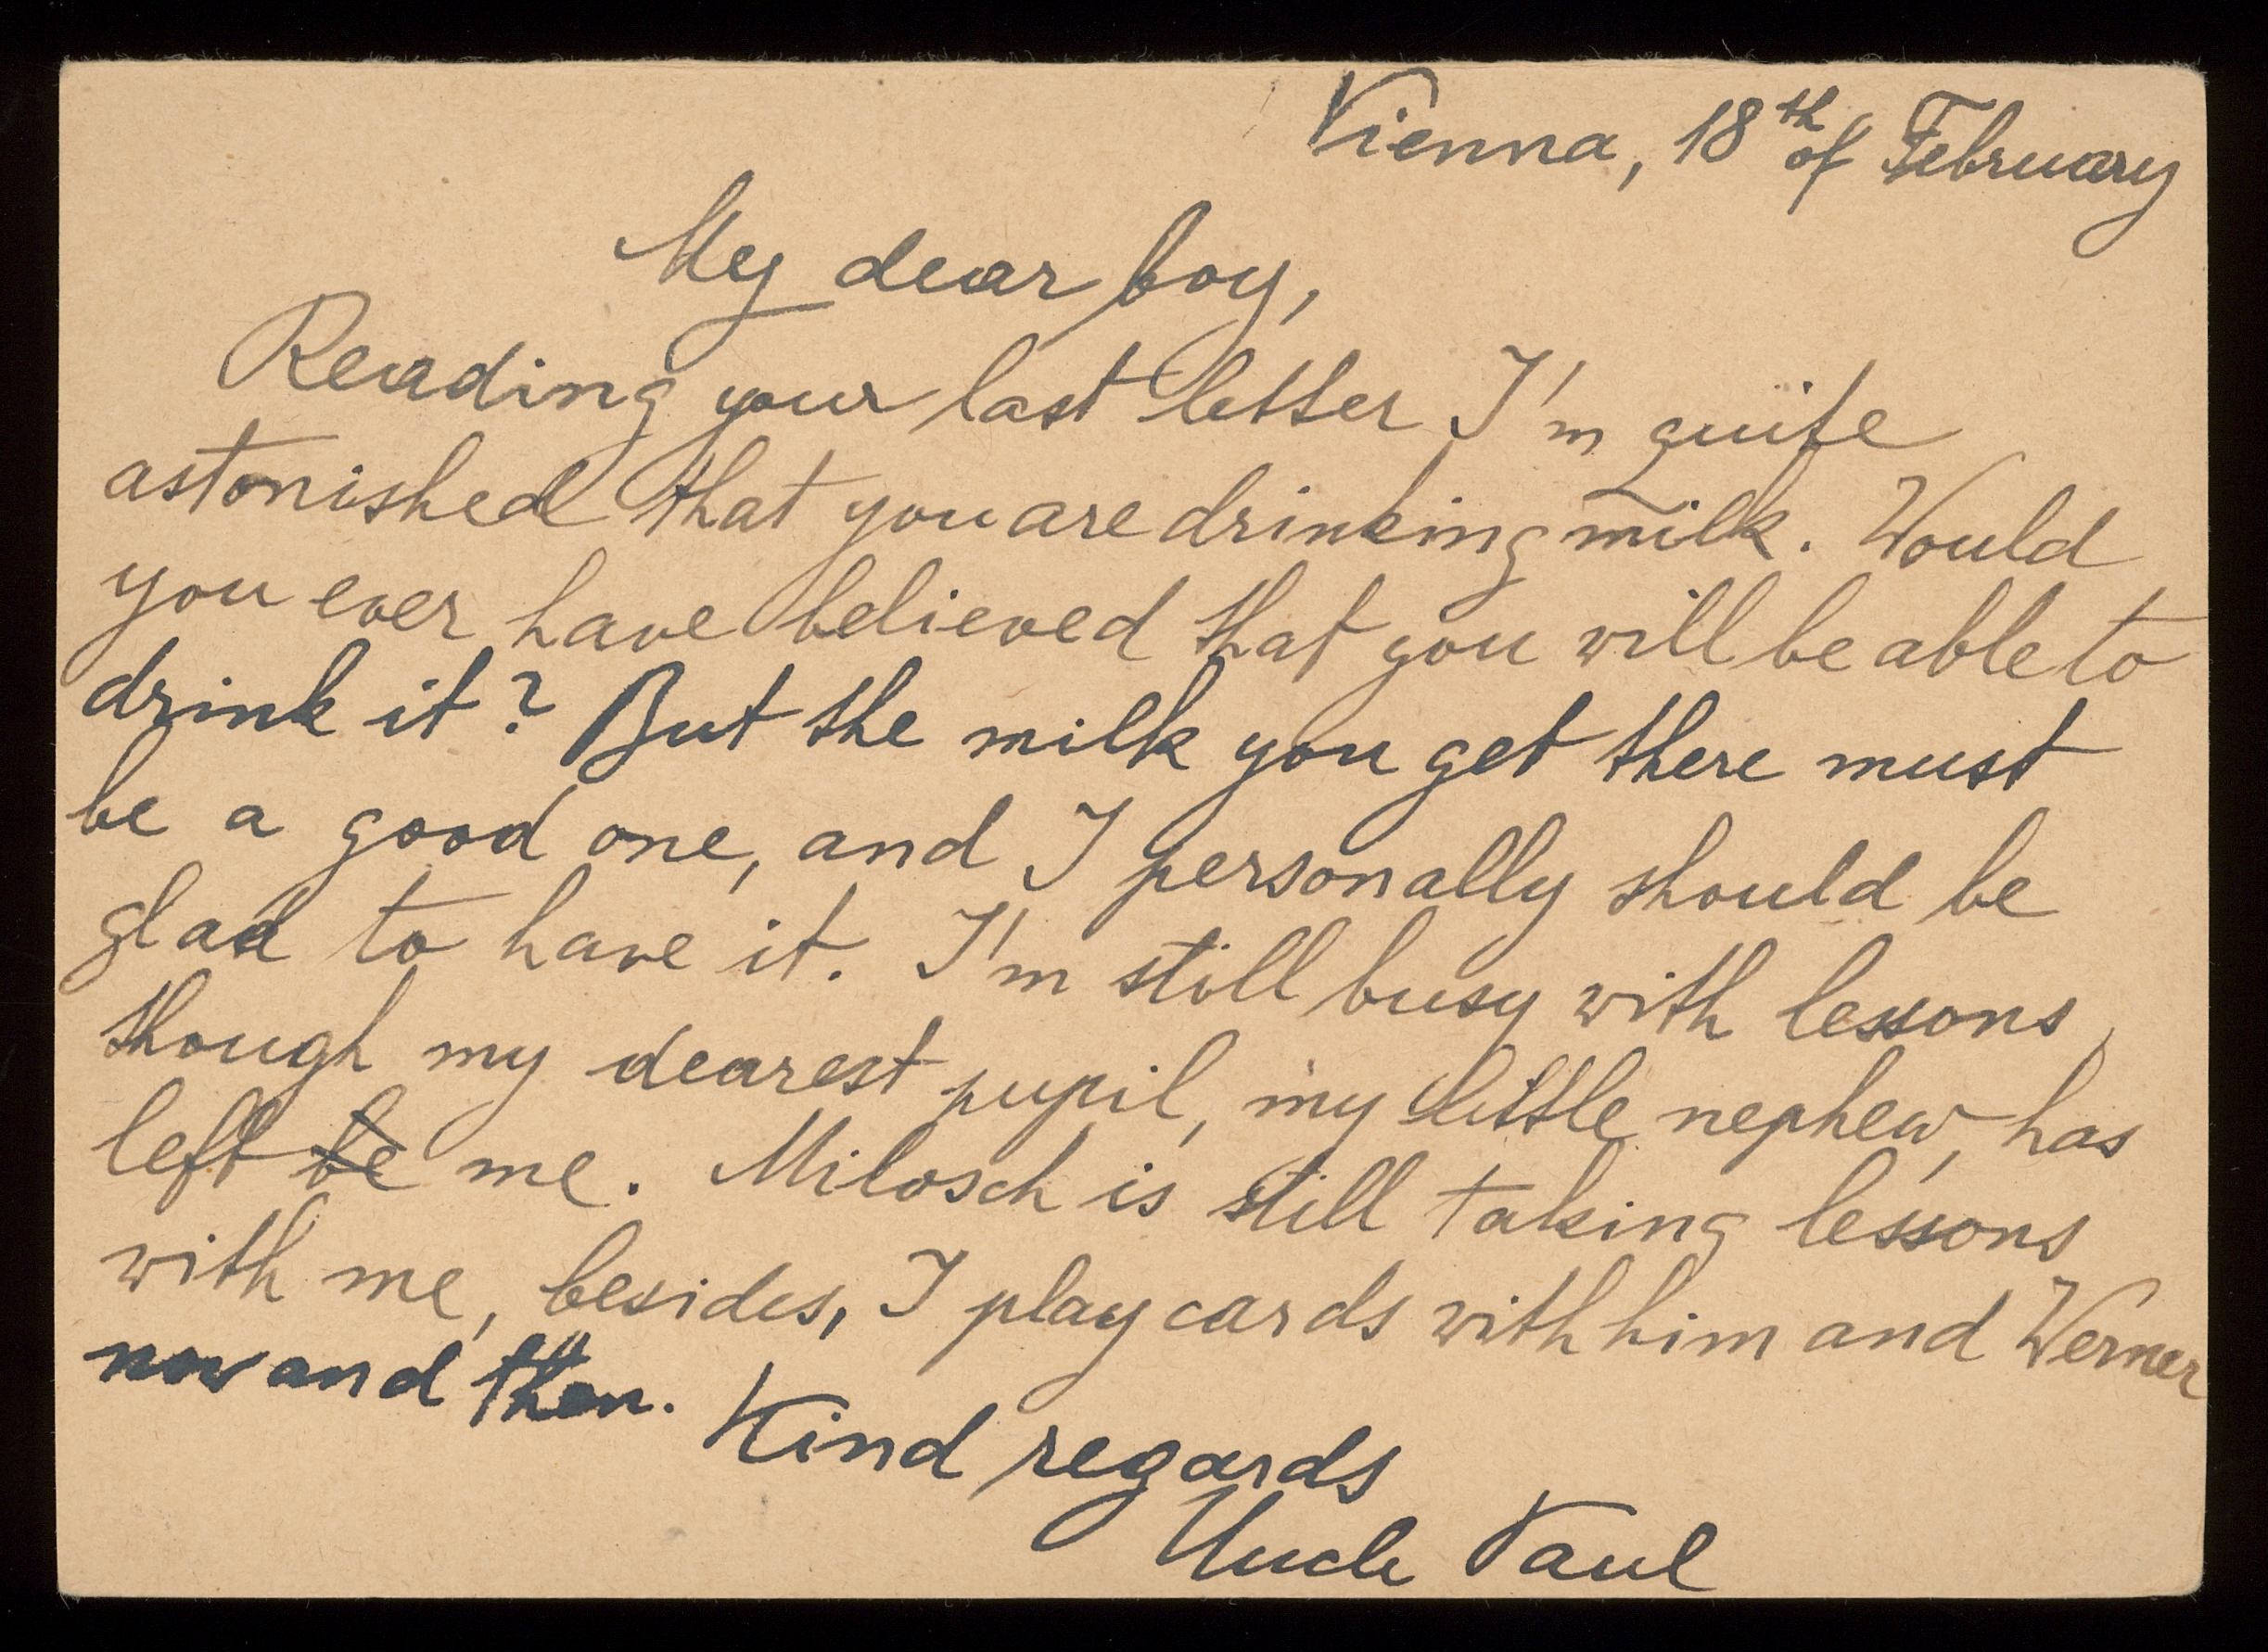 Vienna, 18th of February
My dear boy,
Reading your last letter I'm quite
astonished that you are drinking milk. Would
you ever have believed that you will be able to
drink it? But the milk you get there must
be a good one, and I personally should be
glad to have it. I'm still busy with lessons,
though my dearest pupil, my little nephew, has
left be me. Milosch is still taking lessons
with me, besides, I play cards with him and Werner
now and then. Kind regards
Uncle Paul